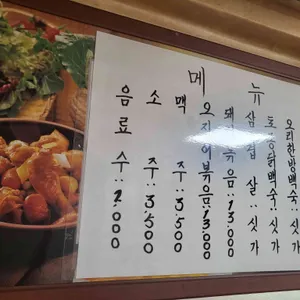 메뉴
오리한방백숙:싯가
토종닭백숙:싯가
삼겹살:싯가
돼지볶음:13.000
오징어볶음:13.000
맥주:3.500
소주:3.500
음료수:2.000